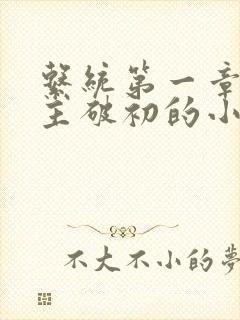 繫統第一章
主破初的小
不大不小的夢